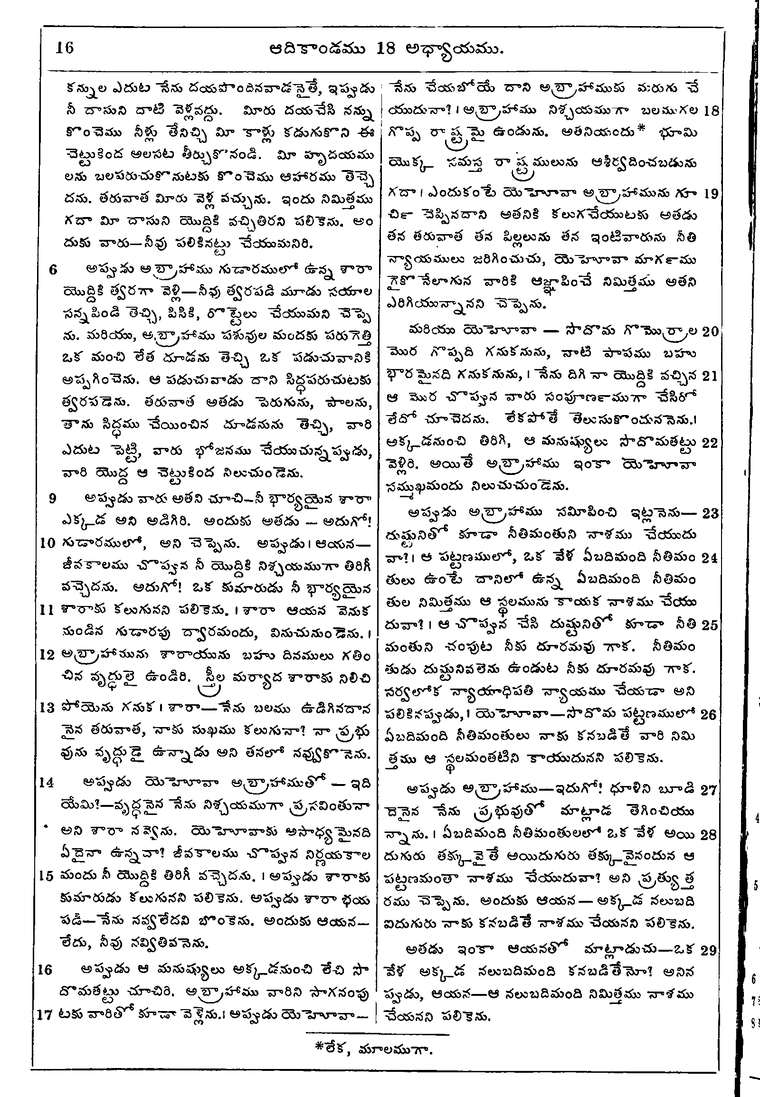 16 ఆదికాండము 18 అధ్యాయము.
కన్నుల ఎదుట నేను దయపొందినవాడనైతే, ఇప్పుడు
నీ దాసుని దాటి వెళ్లవద్దు. మీరు దయచేసి నన్ను
కొంచెము నీళ్లు తేనిచ్చి మీ కాళ్లు కడుగుకొని ఈ
చెట్టుకింద అలసట తీర్చుకోనండి. మీ హృదయము
లను బలపరుచుకొనుటకు కొంచెము ఆహారము తెచ్చె
దను. తరువాత మీరు వెళ్ల వచ్చును. ఇందు నిమిత్తము
గదా మీ దాసుని యొద్దికి వచ్చితిరని పలికెను. అం
దుకు వారు—నీవు పలికినట్టు చేయుమనిరి.
6 అప్పుడు అబ్రాహాము గుడారములో ఉన్న శారా
యొద్దికి త్వరగా వెళ్లి—నీవు త్వరపడి మూడు సయాల
సన్నపిండి తెచ్చి, పిసికి, రొట్టెలు చేయుమని చెప్పె
ను. మరియు, అబ్రాహాము పశువుల మందకు పరుగెత్తి
ఒక మంచి లేత దూడను తెచ్చి ఒక పడుచువానికి
అప్పగించెను. ఆ పడుచువాడు దాని సిద్ధపరుచుటకు
త్వరపడెను. తరువాత అతడు పెరుగును, పాలను,
తాను సిద్ధము చేయించిన దూడనును తెచ్చి, వారి
ఎదుట పెట్టి, వారు భోజనము చేయుచున్నప్పుడు,
వారి యొద్ద ఆ చెట్టుకింద నిలుచుండెను.
9 అప్పుడు వారు అతని చూచి—నీ భార్యయైన శారా
ఎక్కడ అని అడిగిరి. అందుకు అతడు — అదుగో!
10 గుడారములో, అని చెప్పెను. అప్పుడు। ఆయన—
జీవకాలము చొప్పున నీ యొద్దికి నిశ్చయముగా తిరిగీ
వచ్చెదను. అదుగో! ఒక కుమారుడు నీ భార్యయైన
11 శారాకు కలుగునని పలికెను. । శారా ఆయన వెనుక
నుండిన గుడారపు ద్వారమందు, వినుచునుండెను. ।
12 అబ్రాహామును శారాయును బహు దినములు గతిం
చిన వృద్ధులై ఉండిరి. స్త్రీల మర్యాద శారాకు నిలిచి
13 పోయెను గనుక। శారా—నేను బలము ఉడిగినదాన
నైన తరువాత, నాకు సుఖము కలుగునా? నా ప్రభు
వును వృద్ధుడై ఉన్నాడు అని తనలో నవ్వుకొనెను.
14 అప్పుడు యెహోవా అబ్రాహాముతో — ఇది
యేమి?—వృద్ధనైన నేను నిశ్చయముగా ప్రసవింతునా
అని శారా నవ్వెను. యెహోవాకు అసాధ్యమైనది
ఏదైనా ఉన్నదా? జీవకాలము చొప్పున నిర్ణయకాల
15 మందు నీ యొద్దికి తిరిగీ వచ్చెదను. । అప్పుడు శారాకు
కుమారుడు కలుగునని పలికెను. అప్పుడు శారా భయ
పడి—నేను నవ్వలేదవి బొంకెను. అందుకు ఆయన—
లేదు, నీవు నవ్వితివనెను.
16 అప్పుడు ఆ మనుష్యులు అక్కడనుంచి లేచి సొ
దొమతట్టు చూచిరి. అబ్రాహాము వారిని సాగనంపు
17 టకు వారితో కూడా వెళ్లెను.। అప్పుడు యెహోవా—
నేను చేయబోయే దాని అబ్రాహాముకు మరుగు చే
యుదునా?। అబ్రాహాము నిశ్చయముగా బలముగల 18
గొప్ప రాష్ట్రమై ఉండును. అతనియందు* భూమి
యొక్క సమస్త రాష్ట్రములును ఆశీర్వదించబడును
గదా। ఎందుకంటే యెహోవా అబ్రాహామును గూ 19
చిర్చి చెప్పినదాని అతనికి కలుగచేయుటకు అతడు
తన తరువాత తన పిల్లలును తన ఇంటివారును నీతి
న్యాయములు జరిగించుచు, యెహోవా మార్గము
గైకొనేలాగున వారికి ఆజ్ఞాపించే నిమిత్తము అతని
ఎరిగియున్నానని చెప్పెను.
మరియు యెహోవా — సొదొమ గొమొర్రాల 20
మొర గొప్పది గనుకనును, వాటి పాపము బహు
భారమైనది గనుకనును, । నేను దిగి నా యొద్దికి వచ్చిన 21
ఆ మొర చొప్పున వారు సంపూర్ణముగా చేసిరో
లేదో చూచెదను. లేకపోతే తెలుసుకొందుననెను.।
అక్కడనుంచి తిరిగి, ఆ మనుష్యులు సొదొమతట్టు 22
వెళ్లిరి. అయితే అబ్రాహాము ఇంకా యెహోవా
సమ్ముఖమందు నిలుచుచుండెను.
అప్పుడు అబ్రాహాము సమీపించి ఇట్లనెను— 23
దుష్టునితో కూడా నీతిమంతుని నాశము చేయుదు
వా?। ఆ పట్టణములో, ఒక వేళ ఏబదిమంది నీతిమం 24
తులు ఉంటే దానిలో ఉన్న ఏబదిమంది నీతిమం
తుల నిమిత్తము ఆ స్థలమును కాయక నాశము చేయు
దువా?। ఆ చొప్పున చేసి దుష్టునితో కూడా నీతి 25
మంతుని చంపుట నీకు దూరమవు గాక. నీతిమం
తుడు దుష్టునివలెను ఉండుట నీకు దూరమవు గాక.
సర్వలోక న్యాయాధిపతి న్యాయము చేయడా అని
పలికినప్పుడు, । యెహోవా—సొదొమ పట్టణములో 26
ఏబదిమంది నీతిమంతులు నాకు కనబడితే వారి నిమి
త్తము ఆ స్థలమంతటిని కాయుదునని పలికెను.
అప్పుడు అబ్రాహాము—ఇదుగో! ధూళిని బూడి 27
దెనైన నేను ప్రభువుతో మాట్లాడ తెగించియు
న్నాను. । ఏబదిమంది నీతిమంతులలో ఒక వేళ అయి 28
దుగురు తక్కువైతే అయిదుగురు తక్కువైనందున ఆ
పట్టణమంతా నాశము చేయుదువా? అని ప్రత్యుత్త
రము చెప్పెను. అందుకు ఆయన — అక్కడ నలుబది
ఐదుగురు నాకు కనబడితే నాశము చేయనని పలికెను.
అతడు ఇంకా ఆయనతో మాట్లాడుచు—ఒక 29
వేళ అక్కడ నలుబదిమంది కనబడితేనో? అనిన
ప్పుడు, ఆయన—ఆ నలుబదిమంది నిమిత్తము నాశము
చేయనని పలికెను.
*లేక, మూలముగా.